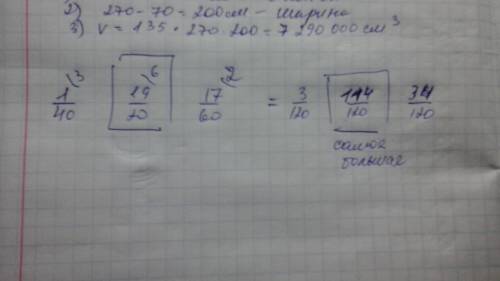 2) 270 - 70 = 200 см - ширина
3) V = 135 · 270 · 200 = 7 290 000 см³
1/40 \3 19/20 \6 17/60 \2 = 3/120 114/120 34/120
самая
большая